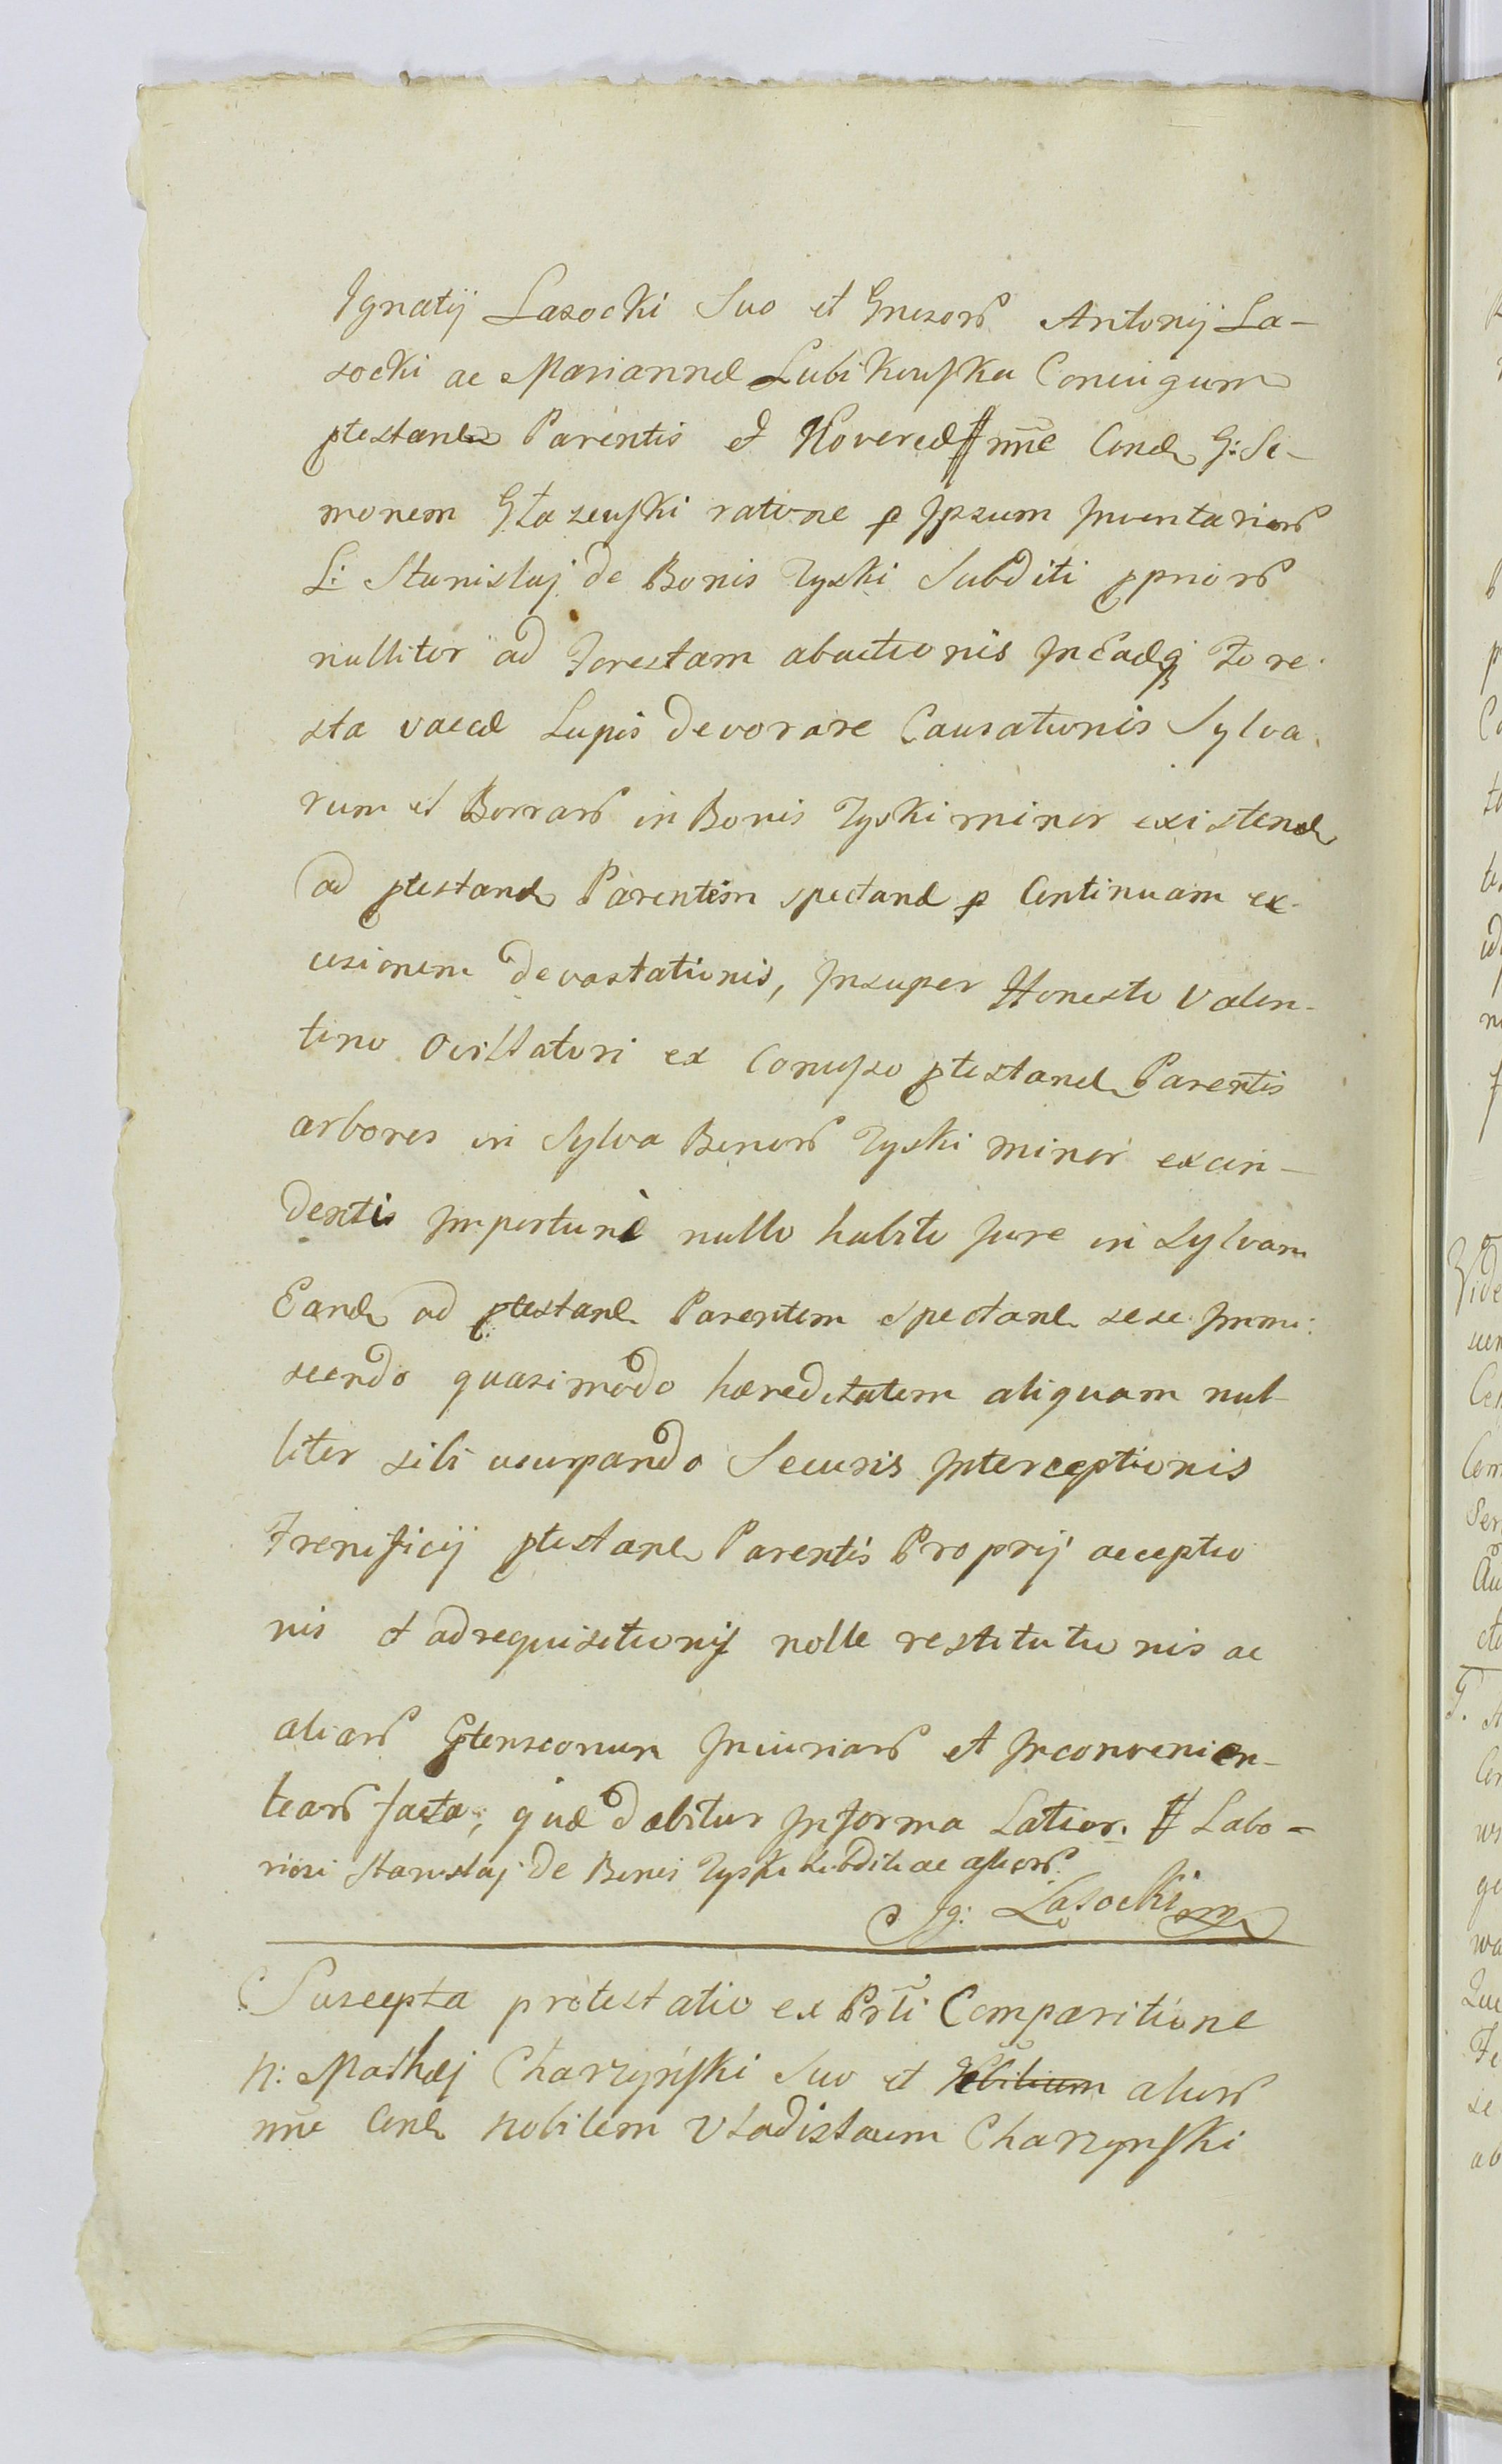 Ignatij Lasocki Suo et Gnesors Antonij La-
socki ac Mariannæ Lubikowska Coniugum
ptestand Parentis et Novercæ # nne Cond G: Si-
monem Głazewski ratione p Ipsum Inventariors
L: Stanislaj de Bonis Tyski Subditi ppriors
nulliter ad Forestam abactionis InEadq Fore
sta vaccæ Lupis devorare Causationis Sylva
rum et Borrars in Bonis Tyski minor existend
ad ptestand Parentem spectand p Continuam ex-
cisionem devastationis, Insuper Honesto Valen-
tino Ovillatori ex Conviso ptestand Parentis
arbores in Sylva Bonors Tyski minor excin-
dentis Importunè nullo habito Jure in Sylvam
Eand ad ptestand Parentem spectand sese Immi
scendo quasi modo hæreditatem aliquam nul
liter sibi usurpando Securis Interceptionis
Frenificij ptestand Parentis Proprij acceptio
nis et adrequisitionis nolle restitutionis ac
aliars Gptensionum Iniuriars et Inconvenien-
tiars facta, quæ dabitur Informa Latior. # Labo-
riosi Stanislaj de Bonis Tyski subditi ac aliors
Ig: Lasocki mp
Suscepta protestatio ex Prti Comparitione
N: Mathæj Charzyński Suo et Nobilium aliors
nne Cond Nobilem Vladislaum Charzynski